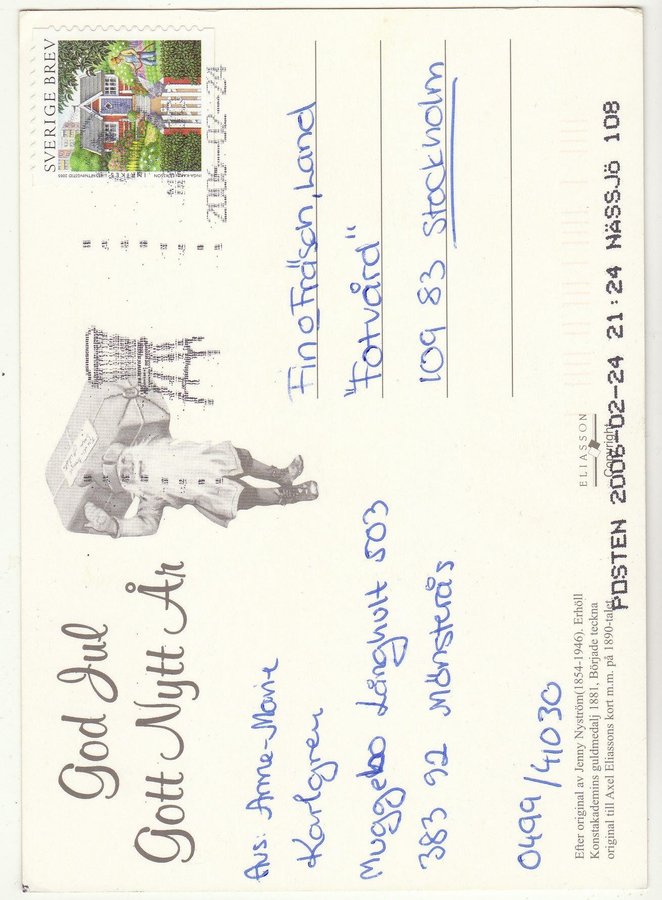 God Jul
Gott Nytt År
Avs: Anne-Marie
Karlgren
Muggebo Långhult 503
383 92 Mönsterås
0499/41030
Efter original av Jenny Nyström(1854-1946). Erhöll
Konstakademins guldmedalj 1881, Började teckna
original till Axel Eliassons kort m.m. på 1890-talet
ELIASSON
Copyright
SVERIGE BREV
2006-02-24
Fin o Fräsch, Land
"Fotvård"
109 83 Stockholm
POSTEN 2006-02-24 21:24 NÄSSJÖ 108